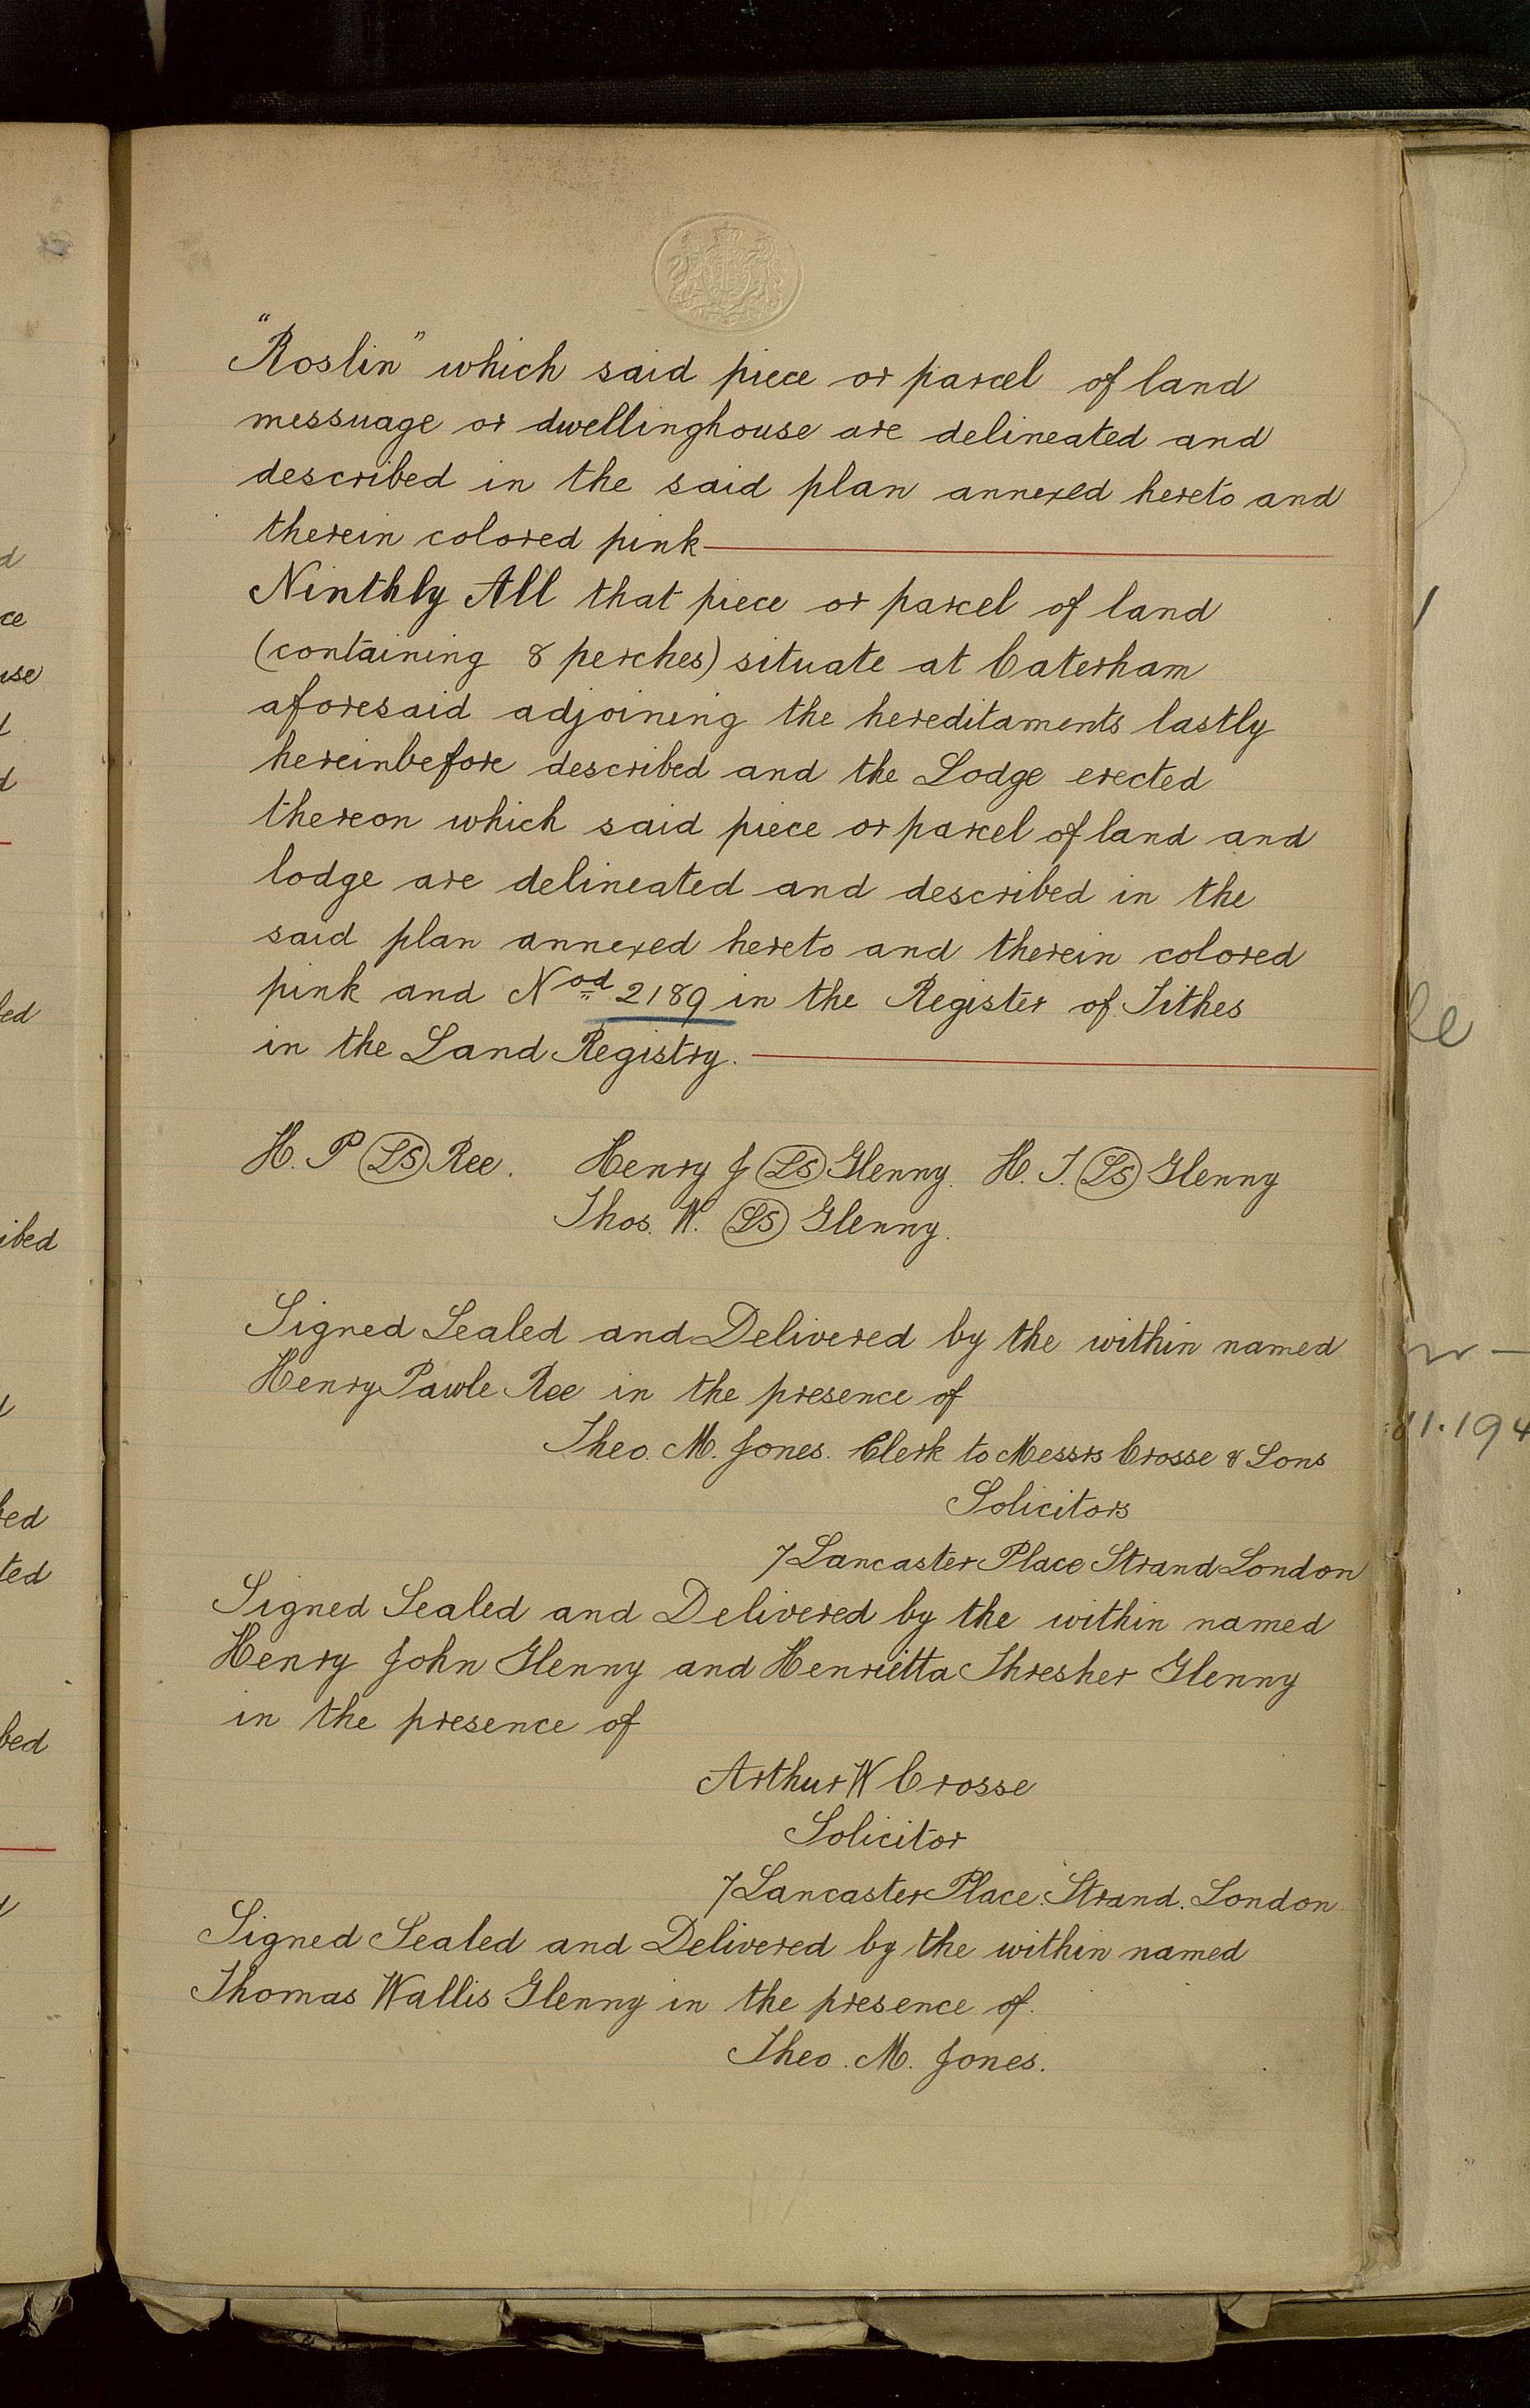 "Roslin" which said piece or parcel of land
messuage or dwellinghouse are delineated and
described in the said plan annexed hereto and
therein colored pink
Ninthly All that piece or parcel of land
(containing 8 perches) situate at Caterham
aforesaid adjoining the hereditaments lastly
hereinbefore described and the Lodge erected
thereon which said piece or parcel of land and
lodge are delineated and described in the
said plan annexed hereto and therein colored
pink and Nod 2189 in the Register of Tithes
in the Land Registry.
H. P (LS) Ree. Henry J (LS) Glenny. H. T. (LS) Glenny
Thos. W. (LS) Glenny.
Signed Sealed and Delivered by the within named
Henry Pawle Ree in the presence of
Theo. M. Jones. Clerk to Messrs Crosse & Sons
Solicitors
7 Lancaster Place Strand London
Signed Sealed and Delivered by the within named
Henry John Glenny and Henrietta Thresher Glenny
in the presence of
Arthur W Crosse
Solicitor
7 Lancaster Place. Strand. London
Signed Sealed and Delivered by the within named
Thomas Wallis Glenny in the presence of.
Theo. M. Jones.